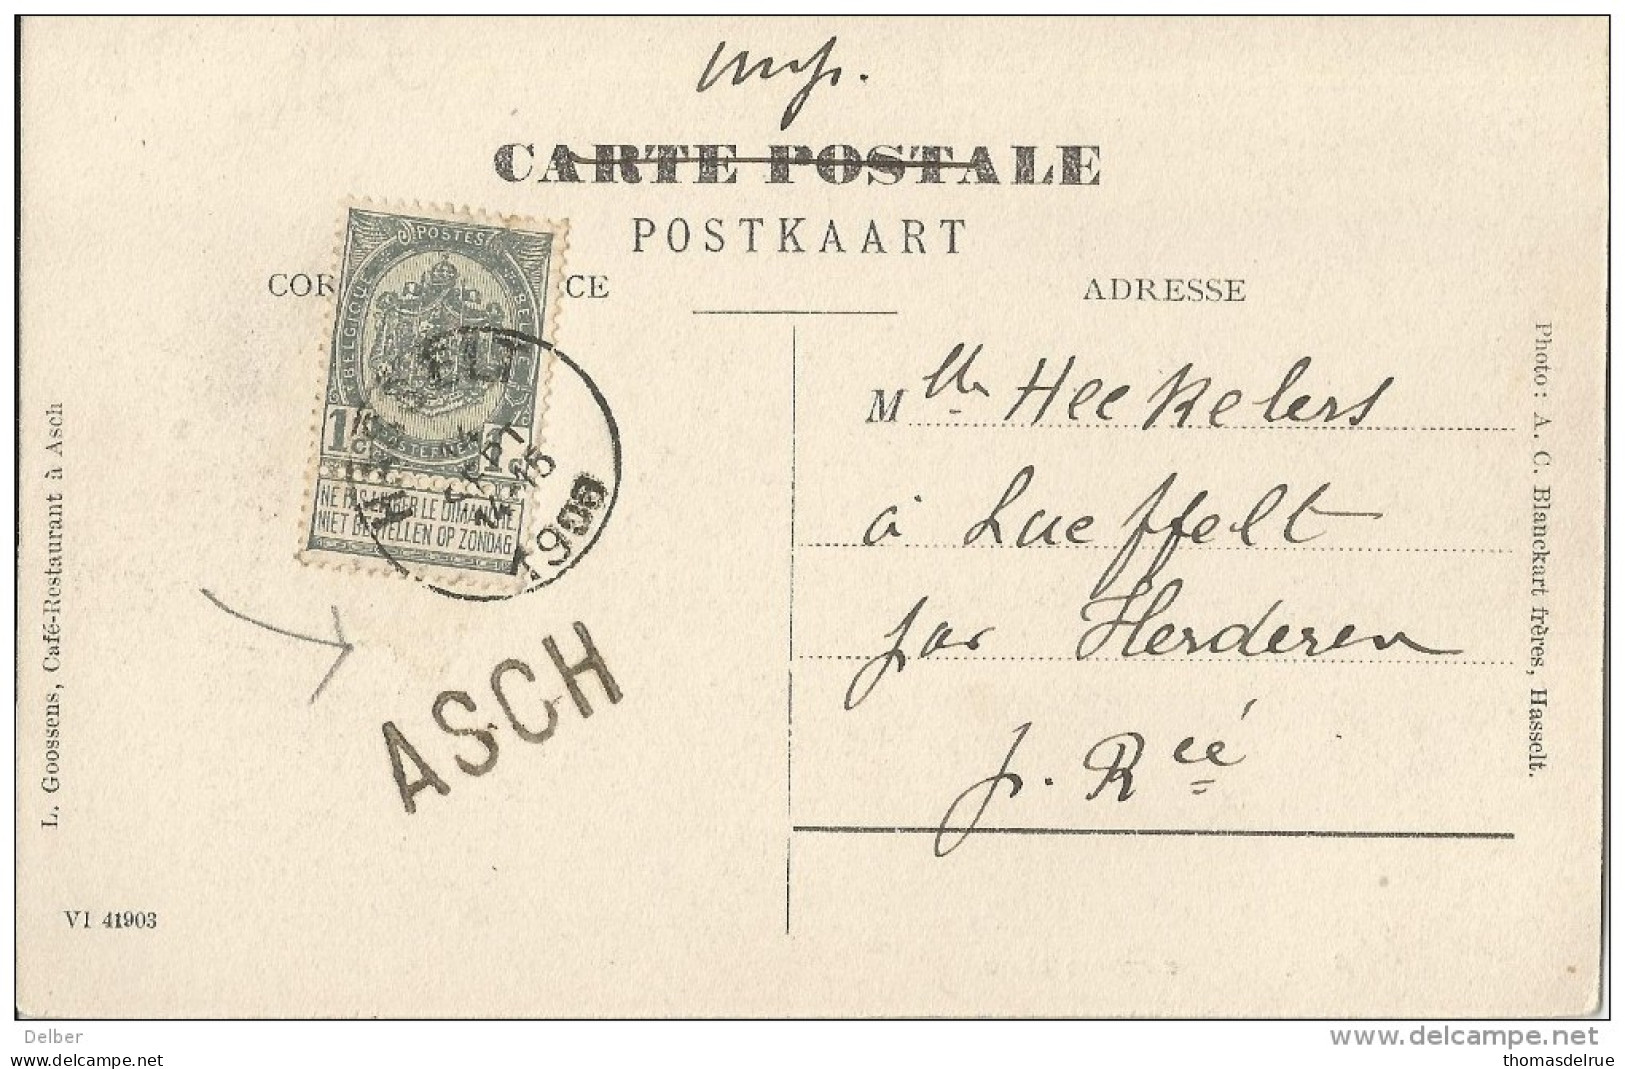 Imp.
CARTE POSTALE
POSTKAART
COR CE
ADRESSE
POSTES
BELGIQUE
BELGIE
POSTERIJEN
NE PAS LIVRER LE DIMANCHE
NIET BESTELLEN OP ZONDAG
SEPT
15
190
ASCH
Mlle Heekelers
à Laeffelt
par Herderen
p. Rcé
L. Goossens, Café-Restaurant à Asch
VI 41903
Photo: A. C. Blanckart frères, Hasselt.
Delber
delcampe.net
www.delcampe.net
thomasdelrue